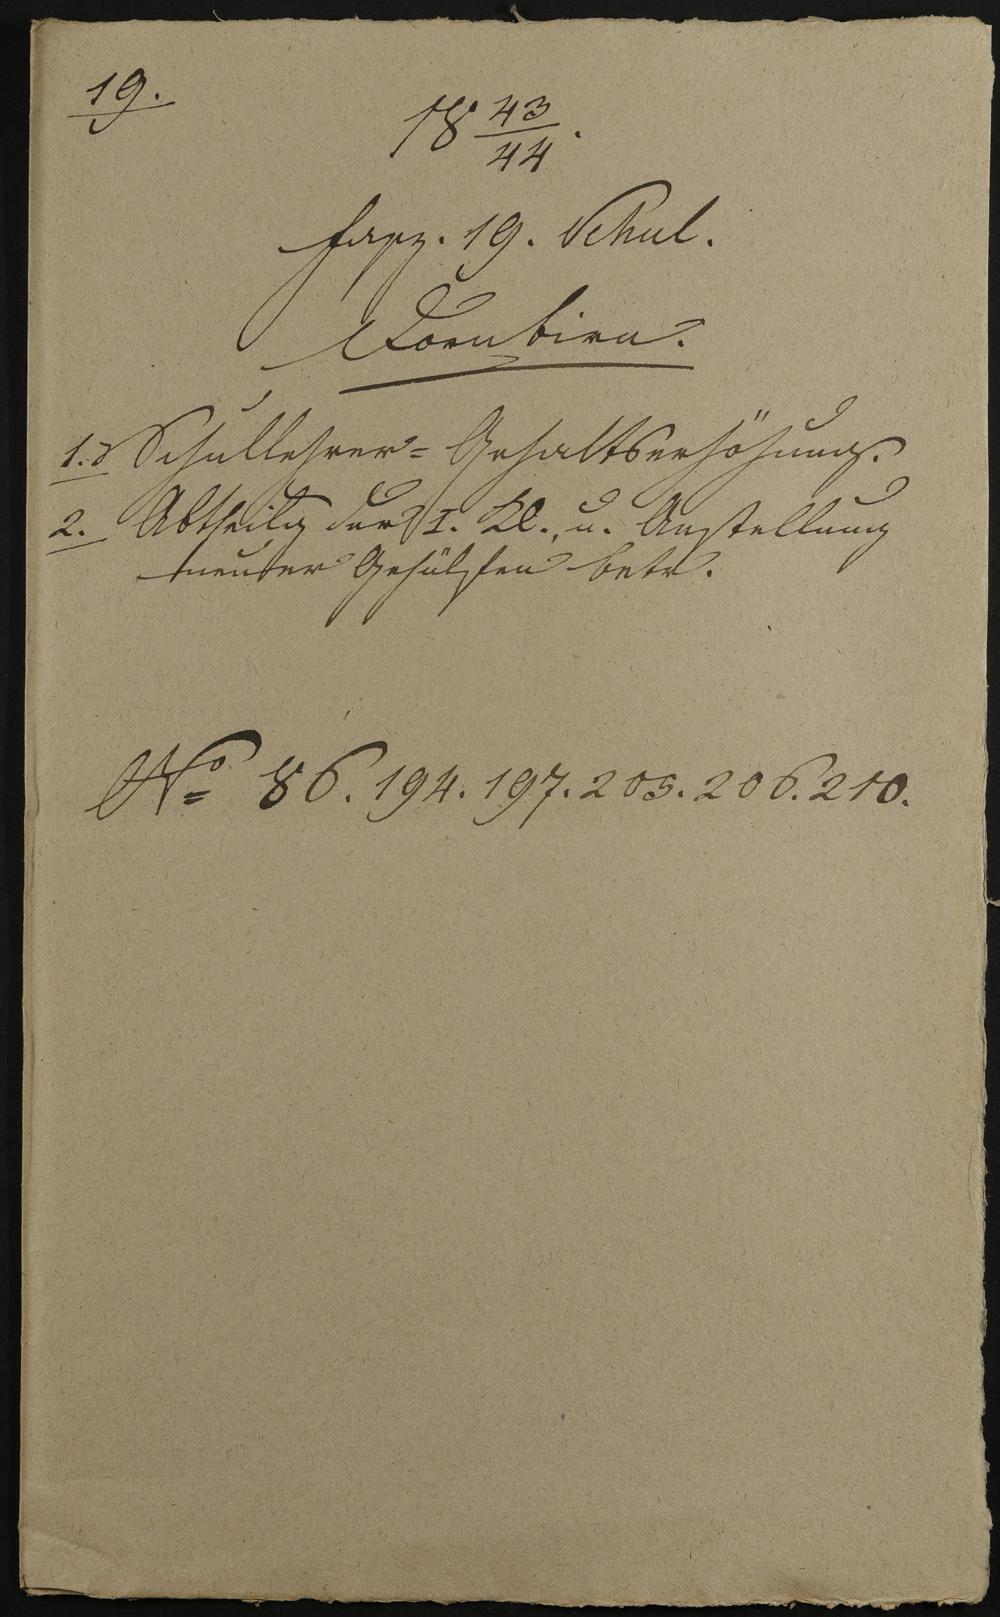 19.
18 43/44.
Fasz. 19. Schul.
Dornbirn.
1. Schullehrer= Gehaltserhöhung.
2. Abtheilg der I. Kl., u. Anstellung
neuer Gehülfen betr.
No 86. 194. 197. 205. 206. 210.